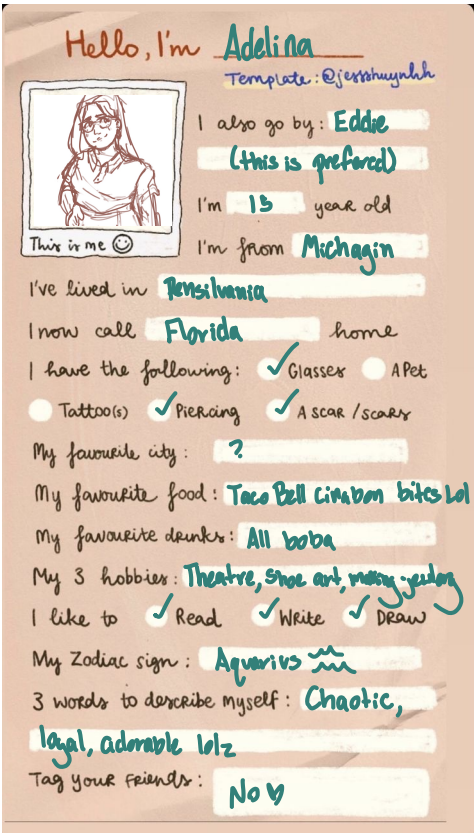 Hello, I'm Adelina
Template: @jessshuynhh
I also go by: Eddie
(this is prefered)
I'm 13 year old
This is me
I'm from Michagin
I've lived in Pensilvania
I now call Florida home
I have the following: ✓ Glasses A Pet
Tattoo(s) ✓ Piercing ✓ A scar / scars
My favourite city: ?
My favourite food: Taco Bell Cinabon bites Lol
My favourite drinks: All boba
My 3 hobbies: Theatre, Shoe art, making jewlary
I like to ✓ Read ✓ Write ✓ Draw
My Zodiac sign: Aquarius ♒
3 words to describe myself: Chaotic,
loyal, adorable lolz
Tag your friends: No ♡